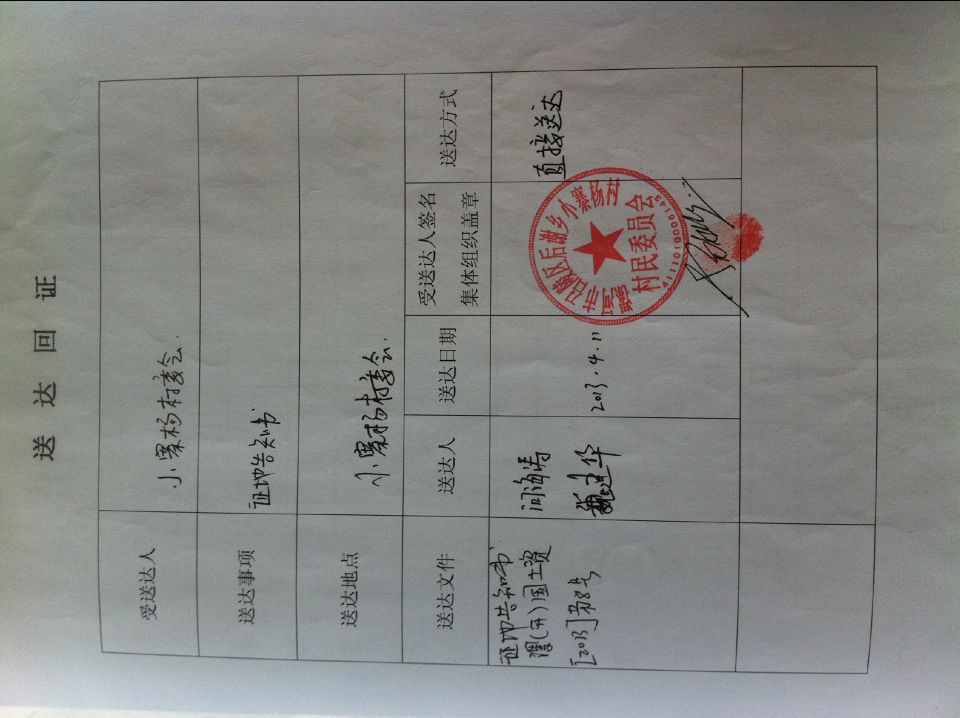 送达回证
受送达人
小寨杨村委会.
送达事项
征地告知书
送达地点
小寨杨村委会.
送达文件
送达人
送达日期
受送达人签名
集体组织盖章
送达方式
征地告知书
漯(市)国土资
[2013]第8号
闫海涛
魏建华
2013.4.11
漯河市召陵区后谢乡小寨杨村
村民委员会
4111010006145
直接送达